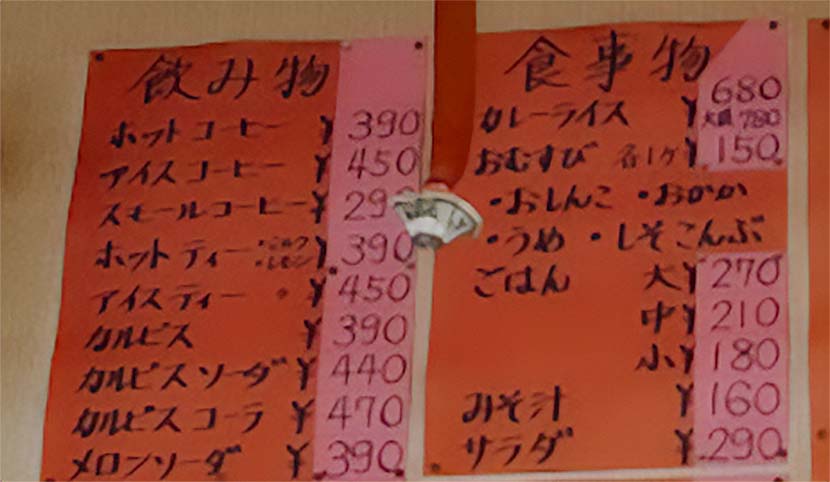 飲み物
ホットコーヒー ¥390
アイスコーヒー ¥450
スモールコーヒー ¥29
ホットティー ・ミルク ・レモン ¥390
アイスティー 〃 ¥450
カルピス ¥390
カルピスソーダ ¥440
カルピスコーラ ¥470
メロンソーダ ¥390
食事物
カレーライス ¥680
大盛 780
おむすび 各1ケ ¥150
・おしんこ ・おかか
・うめ ・しそこんぶ
ごはん 大 ¥270
中 ¥210
小 ¥180
みそ汁 ¥160
サラダ ¥290